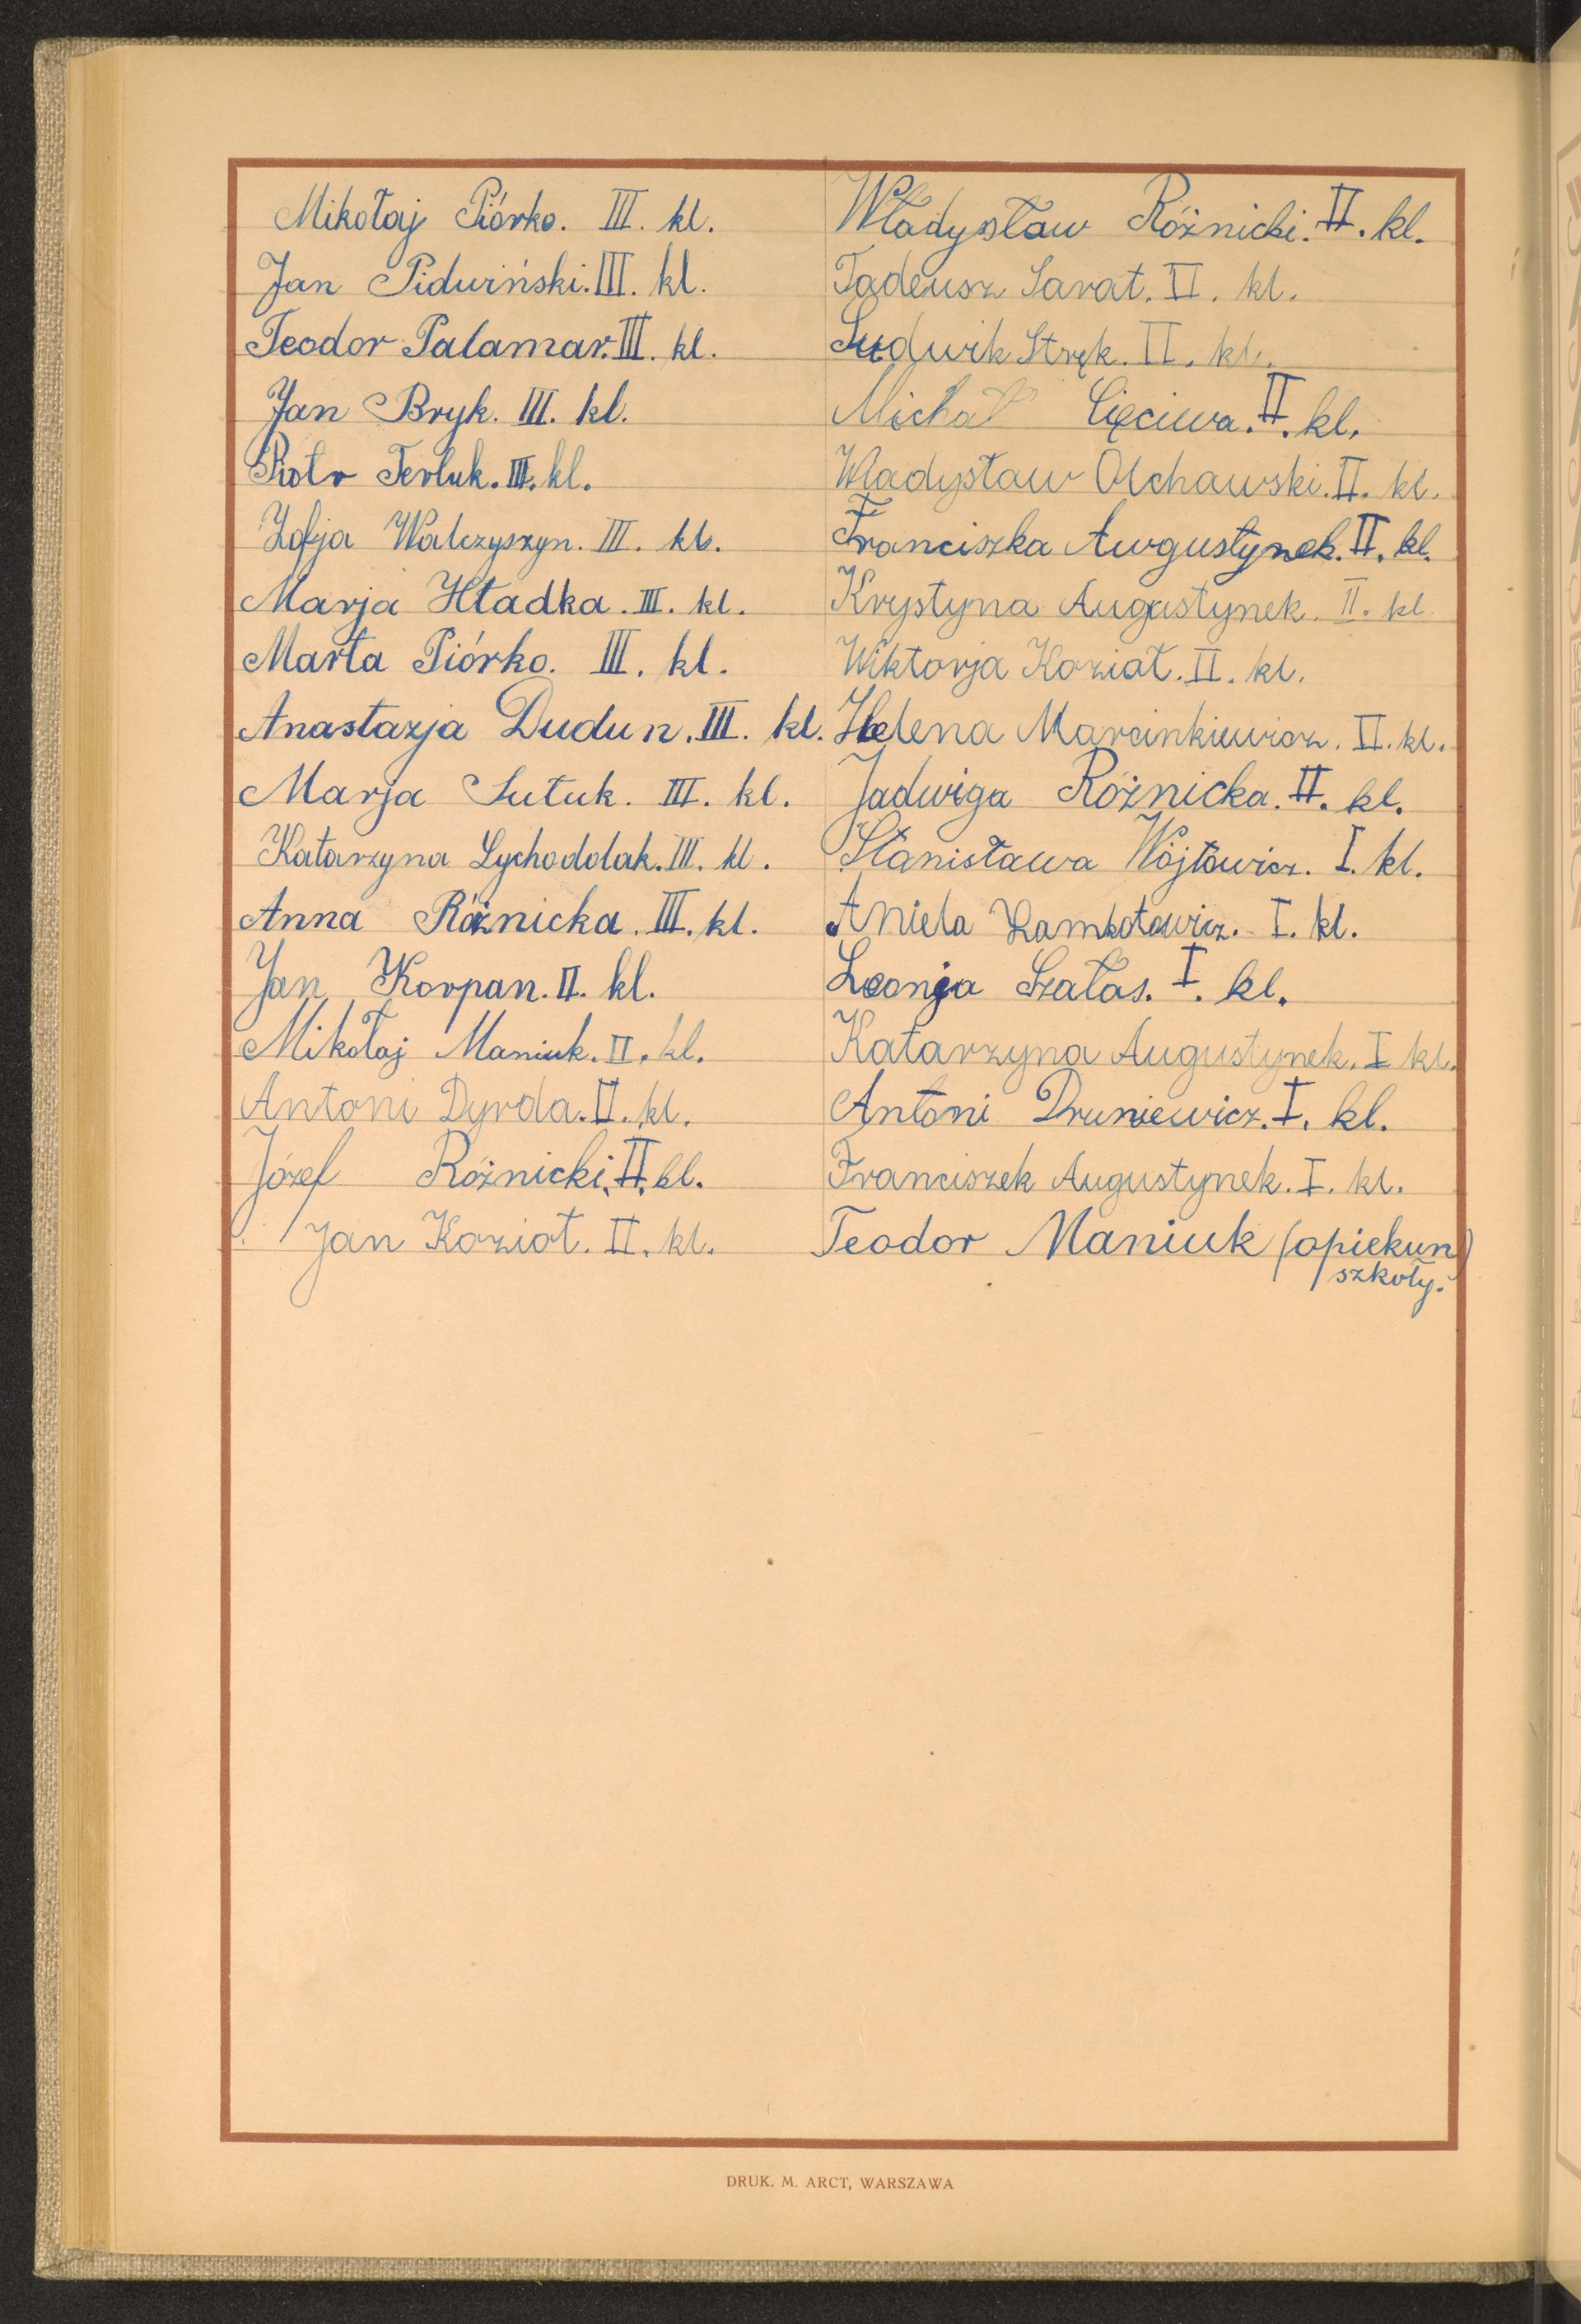 Mikołaj Piórko. III. kl.
Jan Pidwiński. III. kl.
Teodor Palamar. III. kl.
Jan Bryk. III. kl.
Piotr Terluk. III. kl.
Zofja Walczyszyn. III. kl.
Marja Hładka. III. kl.
Marta Piórko. III. kl.
Anastazja Dudun. III. kl.
Marja Sutuk. III. kl.
Katarzyna Lychodolak. III. kl.
Anna Różnicka. III. kl.
Jan Korpan. II. kl.
Mikołaj Maniuk. II. kl.
Antoni Dyrda. II. kl.
Józef Różnicki. II. kl.
Jan Kozioł. II. kl.
Władysław Różnicki. II. kl.
Tadeusz Sarat. II. kl.
Ludwik Stręk. II. kl.
Michał Cięciwa. II. kl.
Władysław Olchawski. II. kl.
Franciszka Augustynek. II. kl.
Krystyna Augustynek. II. kl
Wiktorja Kozioł. II. kl.
Helena Marcinkiewicz. II. kl.
Jadwiga Różnicka. II. kl.
Stanisława Wójtowicz. I. kl.
Aniela I. kl.
Leonja Szałas. I. kl.
Katarzyna Augustynek. I kl.
Antoni Druniewicz. I. kl.
Franciszek Augustynek. I. kl.
Teodor Maniuk (opiekun)
szkoły.
DRUK. M. ARCT, WARSZAWA